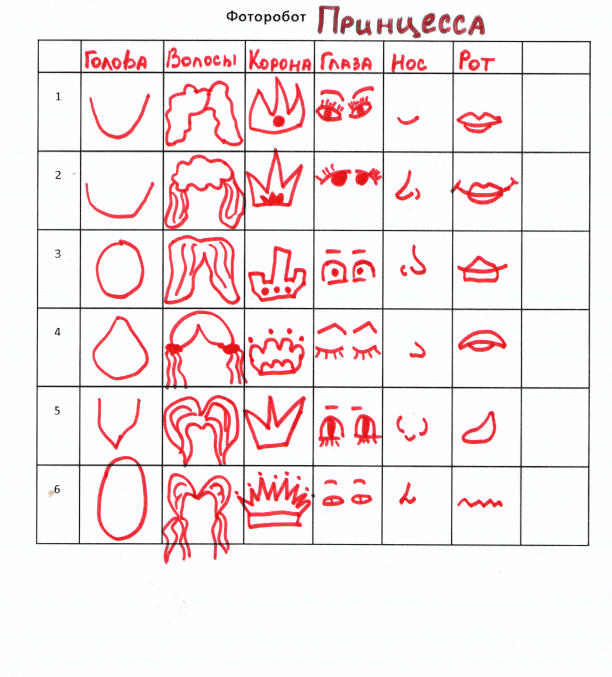 Фоторобот Принцесса
Голова Волосы Корона Глаза Нос Рот
1
2
3
4
5
6